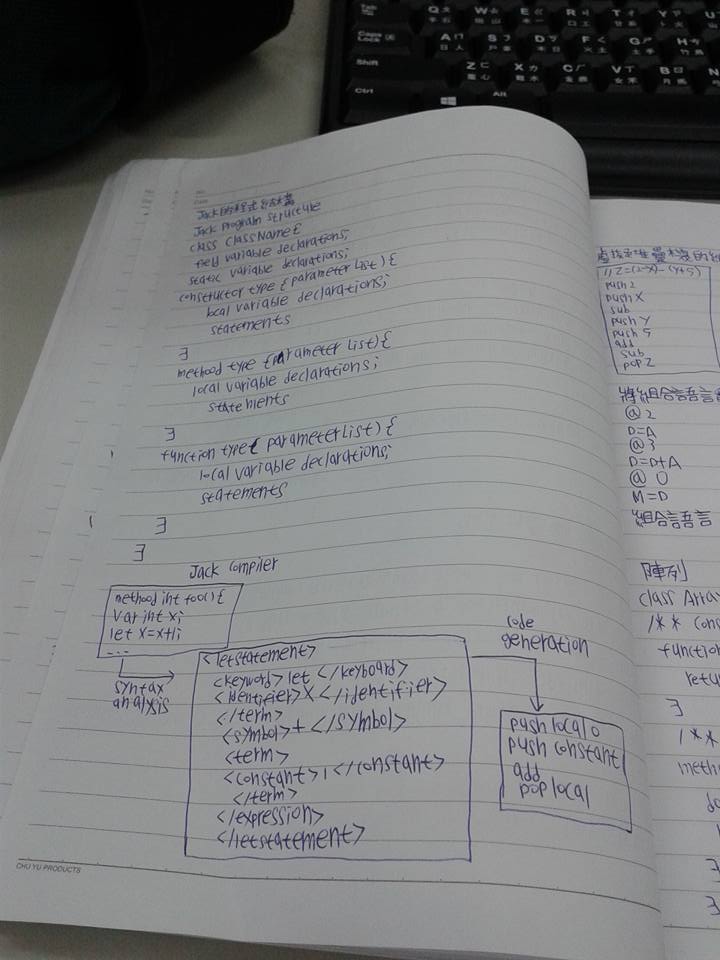 Jack的程式結構
Jack Program structure
class className{
field variable declarations;
static variable declarations;
constructor type {parameter List){
local variable declarations;
statements
}
methood type {parameter List){
local variable declarations;
statements
}
function type{ parameterList){
local variable declarations;
statements
}
}
Jack Compiler
methood int foo(){
Var int x;
let x=x+1;
...
syntax
analysis
<letstatement>
<keyword> let </keyboard>
<identifier>X</identifier>
</term>
<symbol>+</symbol>
<term>
<constant>1</constant>
</term>
</expression>
</letstatement>
code
generation
push local 0
push constant
add
pop local
CHU YU PRODUCTS
//Z=(2-X)-(Y+5)
push 2
push X
sub
push Y
push 5
add
sub
pop Z
將組合語言
@2
D=A
@3
D=D+A
@0
M=D
組合語言
陣列
class Arra
/** Cons
function
retu
}
/**
metho
}
}
Caps Lock
Shift
Ctrl
Alt